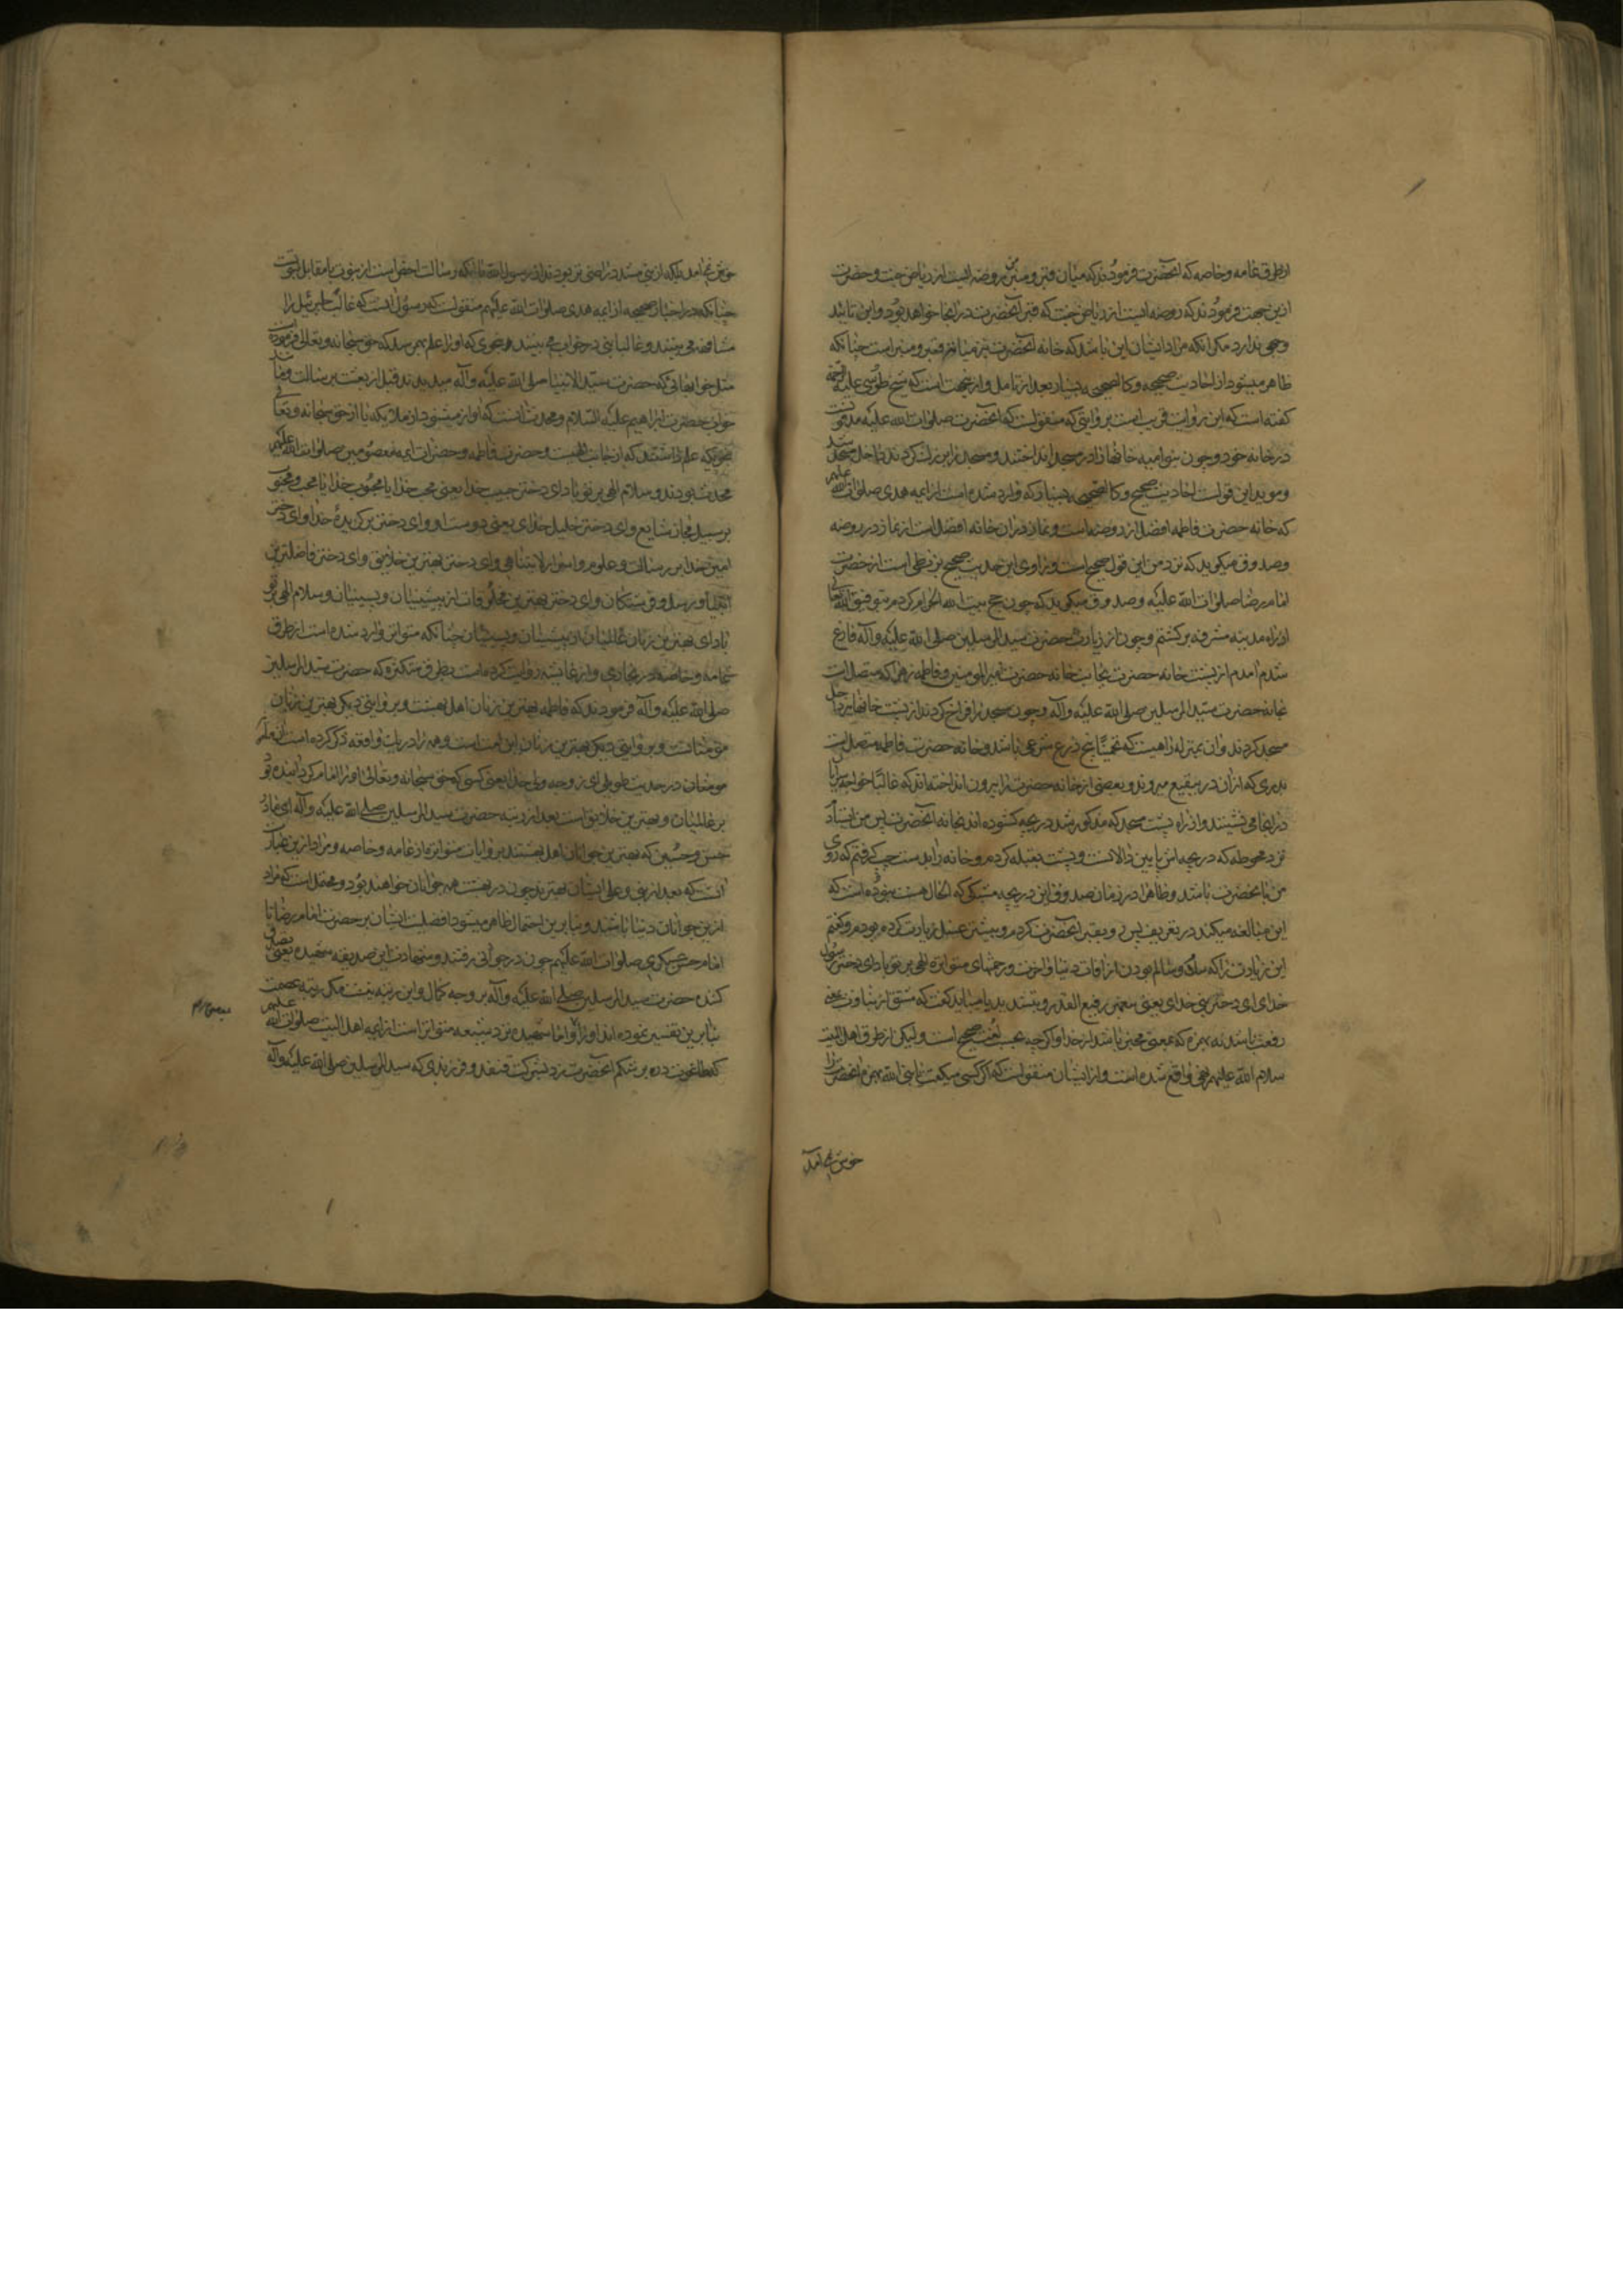 ازطرق عامه وخاصه که انحضرت فرمودند که میان قبر و منبر من روضه ایست از ریاض جنت و حضرت
ازین جهت فرمودند که روضه ایست از ریاض جنت که قبر آنحضرت در آنجا خواهد بود و این تائید
وجهی ندارد مکر انکه مراد ایشان این باشد که خانه انحضرت نیز میانه قبر و منبر است چنانکه
ظاهر میشود از احادیث صحیحه و کالصحیحه بسیار بعد از تامل و ازین جهت است که شیخ طوسی علیه الرحمه
کفته است که این روایت قریب است بروایتی که منقولست که آنحضرت صلوات الله علیه مدفونست
در خانه خود و چون بنو امیه خانها را در مسجد انداختند و مسجد را بزرک کردند داخل مسجد شد
و موید این قولست احادیث صحیح و کالصحیح بسیار که وارد شده است از ایمه هدی صلوات الله علیهم
که خانه حضرت فاطمه افضل از روضه است و نماز در ان خانه افضل است از نماز در روضه
و صدوق میکوید که نزد من این قول صحیح است و راوی این حدیث صحیح بزنطی است از حضرت
امام رضا صلوات الله علیه و صدوق میکوید که چون حج بیت الله الحرام کردم بتوفیق الله تعالی
از راه مدینه مشرفه برکشتم و چون از زیارت حضرت سید المرسلین صلی الله علیه و آله فارغ
شدم امدم از پشت خانه حضرت بجانب خانه حضرت امیر المومنین و فاطمه زهرا که متصل است
بخانه حضرت سید المرسلین صلی الله علیه و آله و چون مسجد را فراخ کردند از پشت خانها نیز داخل
مسجد کردند و ان بمنزله راهیست که تخمینًا پنج ذرع شرعی باشد و خانه حضرت فاطمه متصل است
بدری که از ان در ببقیع میروند و بعضی از خانه حضرت را بیرون انداخته اند که غالبًا خواجه سرایان
در انجا می نشینند و از راه پشت مسجد که مذکور شد دریچه کشوده اند بخانه آنحضرت پس من ایستادم
نزد محوطه که دریچه اش پایین دالانست و پشت بقبله کردم و خانه را بدست چپ کرفتم که روی
من بآنحضرت باشد و ظاهرا در زمان صدوق این دریچه مشبکی که الحال هست نبوده است که
این مبالغه میکند در تعریف پس رو بقبر آنحضرت کردم و پیشتر غسل زیارت کرده بودم و کفتم
این زیارت را که سلام و سالم بودن از افات دنیا و اخرت و رحمتهای متواتره الهی بر تو باد ای دختر رسول
خدای ای دختر نبی خدای یعنی پیغمبر رفیع القدر و بتشدید یا میباید کفت که مشتق از نباوت بمعنی
رفعت باشد نه بهمزه که بمعنی مخبر باشد از خدا و اکرچه بحسب لغت صحیح است و لیکن از طرق اهل البیت
سلام الله علیهم نهی واقع شده است و از ایشان منقولست که اکر کسی میکفت یا نبیء الله بهمزه انحضرت را
خوش نمی آمد
خوش نمی آمد بلکه از نبی مشدد راضی تر بودند از رسول الله با انکه رسالت اخص است از نبوت یا مقابل نبوتست
چنانکه در اخبار صحیحه از ایمه هدی صلوات الله علیهم منقولست که رسول انست که غالبًا جبرئیل را
مشافهه می بیند و غالبا نبی در خواب می بیند و بنحوی که او را علم بهم رسد که حق سبحانه و تعالی فرموده است
مثل خوابهائی که حضرت سید الانبیاء صلی الله علیه و آله میدیدند قبل از بعثت بر سالت و مانند
خواب حضرت ابراهیم علیه السلام و محدث انست که اواز میشنود از ملایکه یا از حق سبحانه و تعالی
بنحویکه علم داشتند که از جانب الهیست و حضرت فاطمه و حضرات ایمه معصومین صلوات الله علیهم
محدث بودند و سلام الهی بر تو باد ای دختر حبیب خدا یعنی محب خدا یا محبوب خدا یا محب و محبوب
بر سبیل مجاز شایع و ای دختر خلیل خدای یعنی دوست او و ای دختر برکزیدهٔ خدا و ای دختر
امین خدا بر رسالت و علوم و اسرار لایتناهی و ای دختر بهترین خلایق و ای دختر فاضلترین
انبیا و رسل و فرشتکان و ای دختر بهترین مخلوقات از پیشینیان و پسینیان و سلام الهی بر تو
باد ای بهترین زنان عالمیان از پیشینیان و پسینیان چنانکه متواتر وارد شده است از طرق
عامه و خاصه و در بخاری و از عایشه روایت کرده است بطرق متکثره که حضرت سید المرسلین
صلی الله علیه و آله فرمودند که فاطمه بهترین زنان اهل بهشت و بروایتی دیکر بهترین زنان
مؤمنانست و بروایتی دیکر بهترین زنان این امت است و همه را در باب واقعه ذکر کرده است
مومنان در حدیث طویلی ای زوجه ولی خدا یعنی کسی که حق سبحانه و تعالی او را امام کردانیده بود
بر عالمیان و بهترین خلایق است بعد از رتبه حضرت سید المرسلین صلی الله علیه و آله ای مادر
حسن و حسین که بهترین جوانان اهل بهشتند بروایات متواتره از عامه و خاصه و مراد ازین عبارت
انست که بعد از نبی و علی ایشان بهترند چون در بهشت همه جوانان خواهند بود و محتمل است که مراد
ازین جوانان دنیا باشند و بنا برین احتمال ظاهر میشود افضلیت ایشان بر حضرت امام رضا تا
امام حسن عسکری صلوات الله علیهم چون در جوانی رفتند و شهادت این صدیقه شهیده یعنی تصدیق
کننده حضرت سید المرسلین صلی الله علیه و آله بر وجه کمال و این رتبه نیست مکر رتبه عصمت
بنا برین تفسیر نموده اند او را و اما شهیده نزد شیعه متواتر است از ایمه اهل البیت صلوات الله علیهم
که در بر شکم آنحضرت زد بشرکت قنفذ و فرزندی که سید المرسلین صلی الله علیه و آله